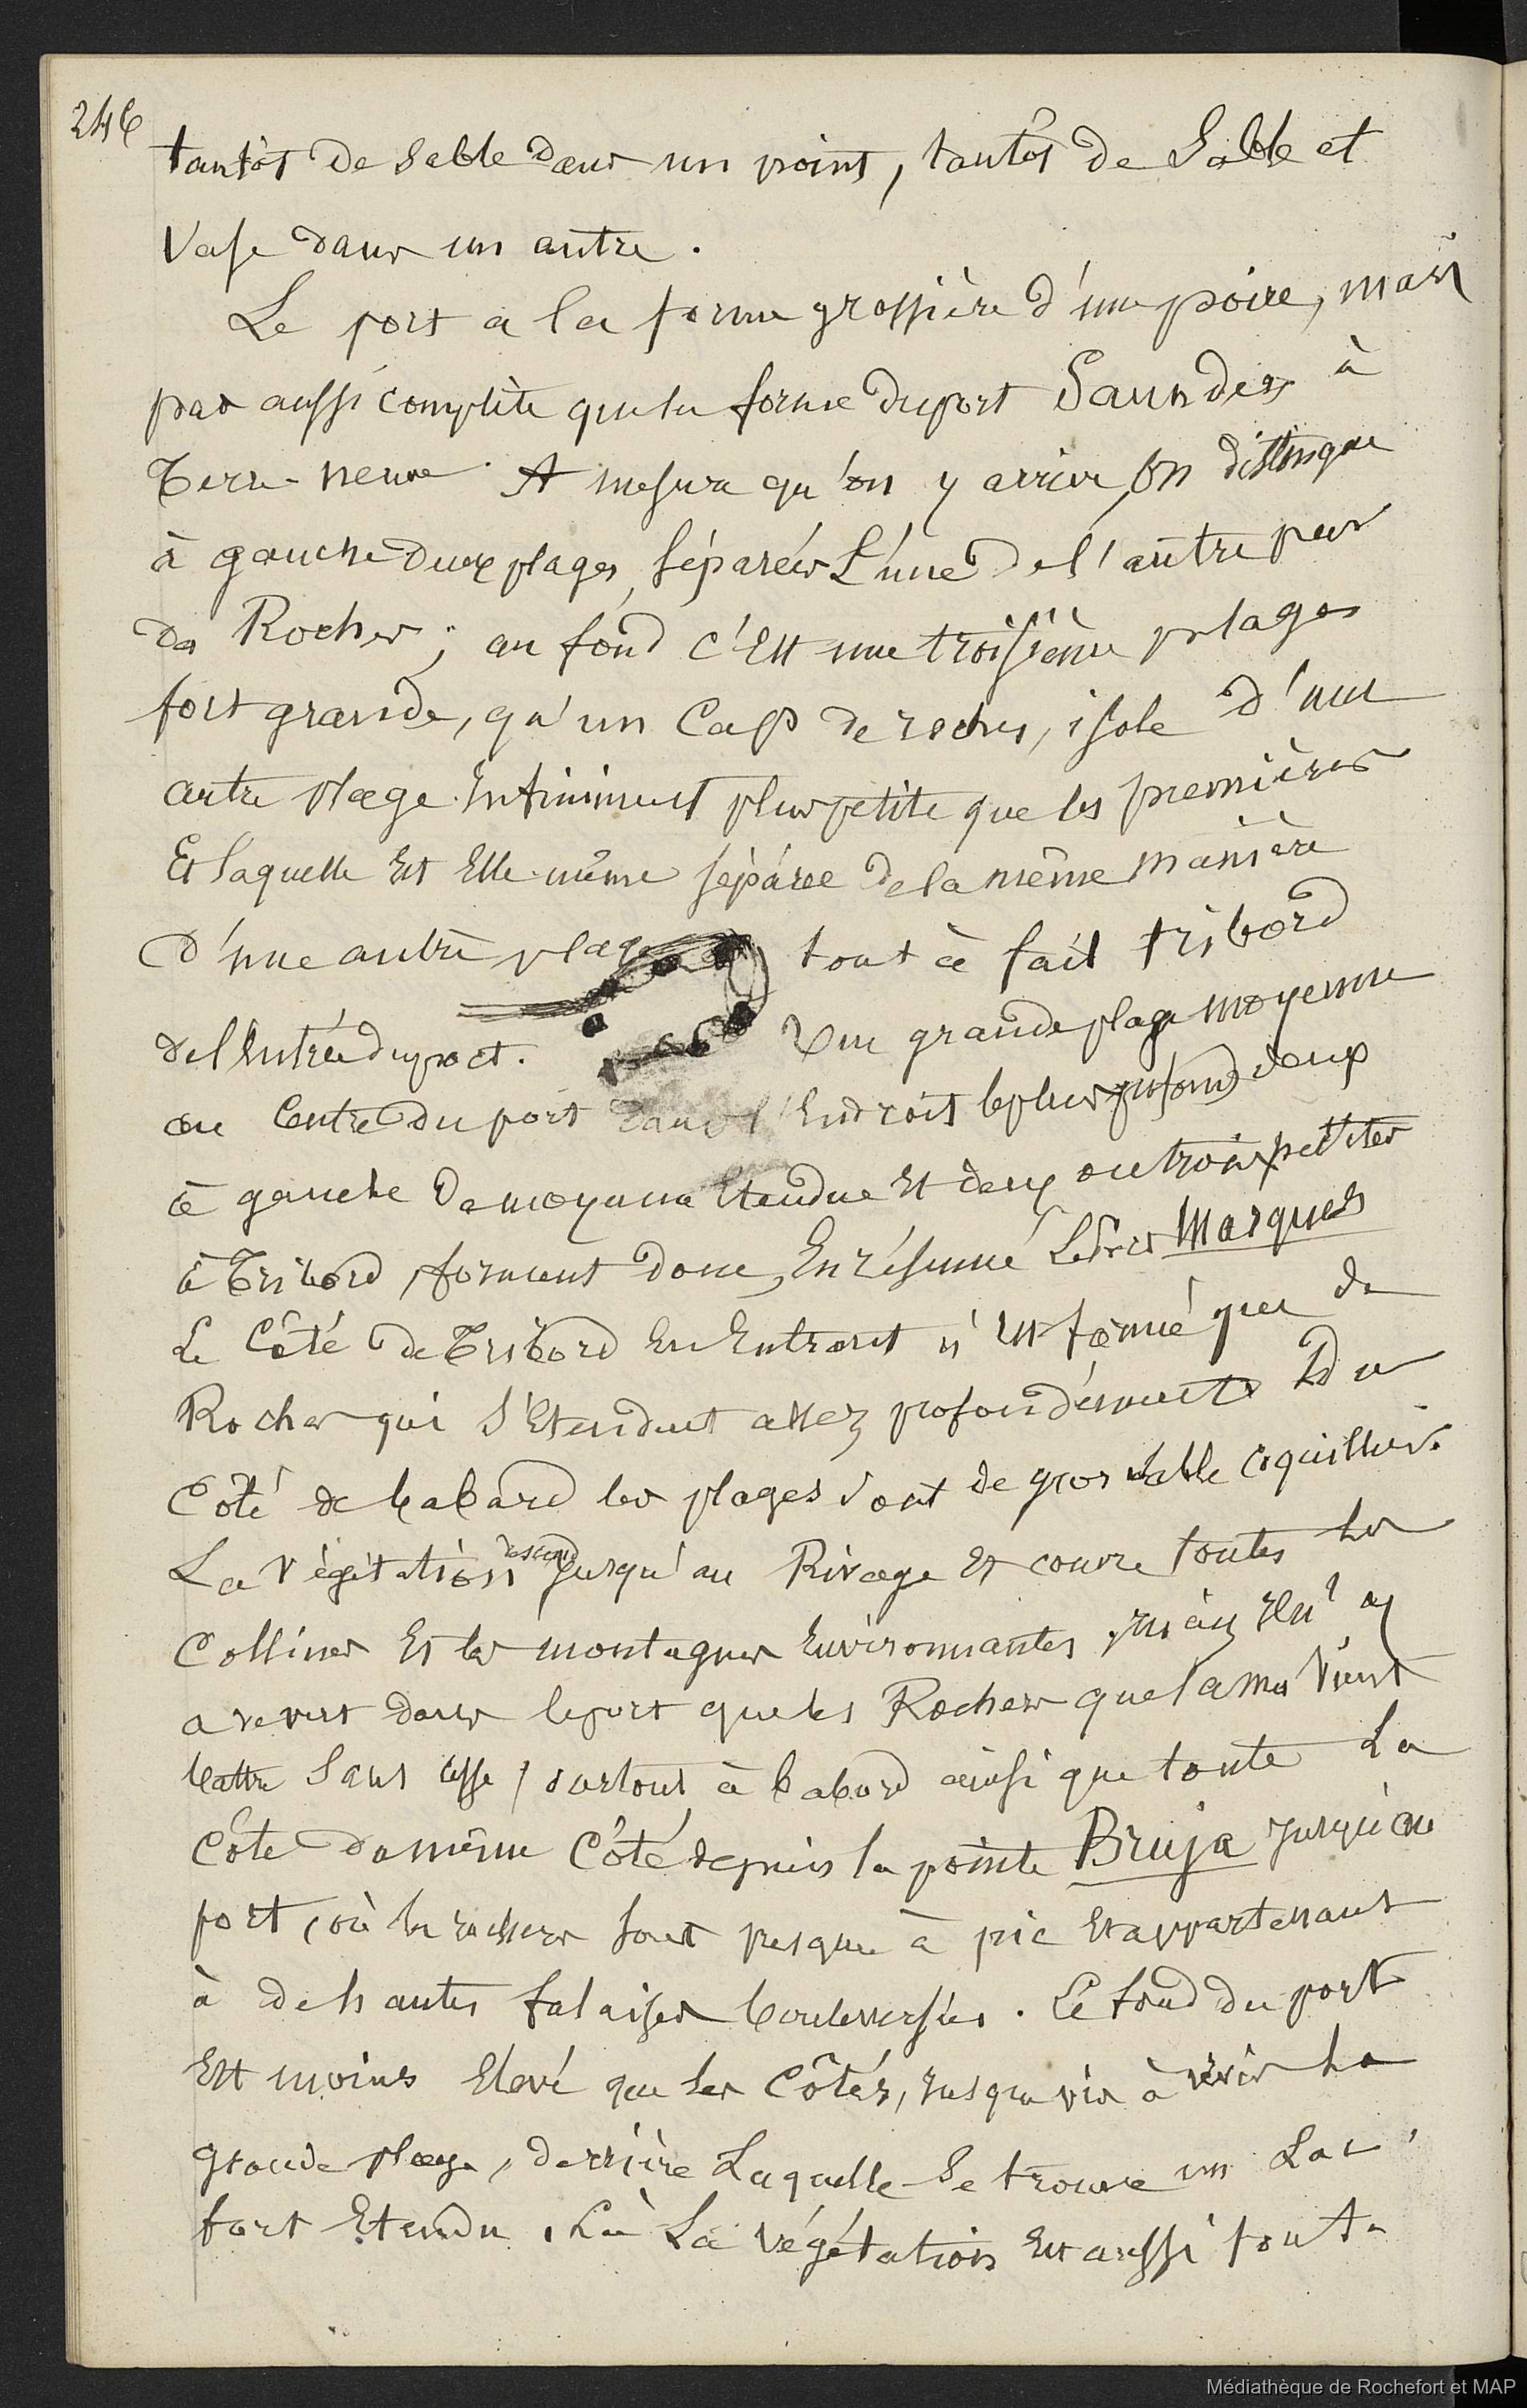 246
tantôt de sable dans un point, tantôt de Sable et
Vase dans un autre.
Le port a la forme grossière d'une poire, mais
pas aussi complète que la forme du port Saunders à
Terre-neuve. A mesure qu'on y arrive, on distingue
à gauche deux plages, séparées L'une de l'autre par
des Rochers; au fond c'Est une troisième plages
fort grande, qu'un Cap de roches, isole d'une
autre plage infiniment plus petite que les premières
Et laquelle Est Elle-même séparée de la même manière
d'une autre plage tout à fait tribord
de l'Entrée du port. Une grande plage moyenne
au Centre du port dans l'Endroit le plus profond deux
à gauche de moyenne Etendue Et deux ou trois petites
à Tribord, forment donc, En résumé Le Port Marquès
Le Côté de Tribord En Entrant n'Est formé que de
Rocher qui S'Etendent assez profondément Du
Côté de babord les plages sont de gros sable coquillier.
La Végétation descend Jusqu'au Rivage Et couvre toutes les
Collines Et les montagnes Environnantes,
dans le port que les Rochers que la mer Vient
battre Sans cesse, surtout à babord ainsi que toute La
Côte du même Côté depuis la pointe Bruja Jusqu'au
port, où les rochers sont presque à pic Et appartenant
à de hautes falaises bouleversées. Le fond du port
Est moins Elevé que les Côtés, Jusque vis à vis La
grande plage, derrière Laquelle Se trouve un Lac
fort Etendu. Là La végétation Est aussi tout-
Médiathèque de Rochefort et MAP